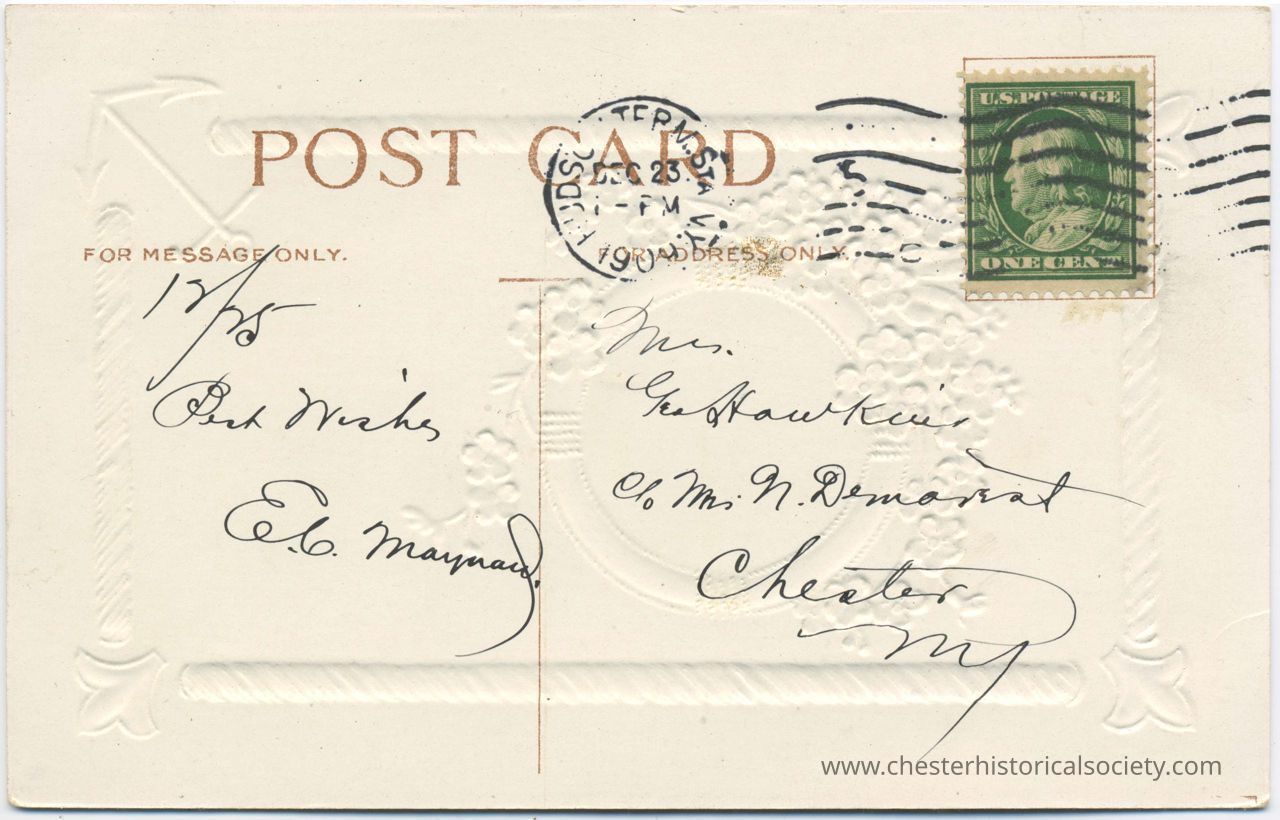 POST CARD
HUDSON TERM. STA. N.Y.
DEC 23
1 - PM
190
U.S. POSTAGE
ONE CENT
FOR MESSAGE ONLY.
FOR ADDRESS ONLY.
12/25
Best Wishes
E.C. Maynard.
Mrs.
Geo Hawkins
c/o Mrs N. Demarest
Chester
NY
www.chesterhistoricalsociety.com